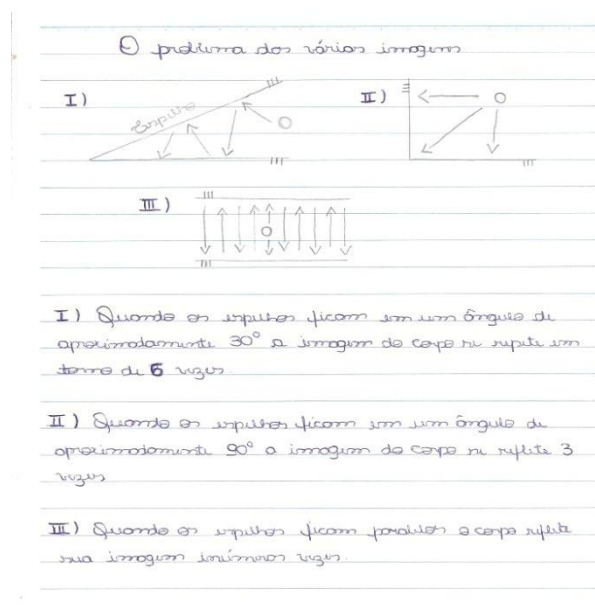 O problema dos várias imagens
I)
Espelho
II)
III)
I) Quando os espelhos ficam em um ângulo de
aproximadamente 30° a imagem do corpo se repete em
torno de 5 vezes.
II) Quando os espelhos ficam em um ângulo de
aproximadamente 90° a imagem do corpo se reflete 3
vezes
III) Quando os espelhos ficam paralelos o corpo reflete
sua imagem inúmeras vezes.